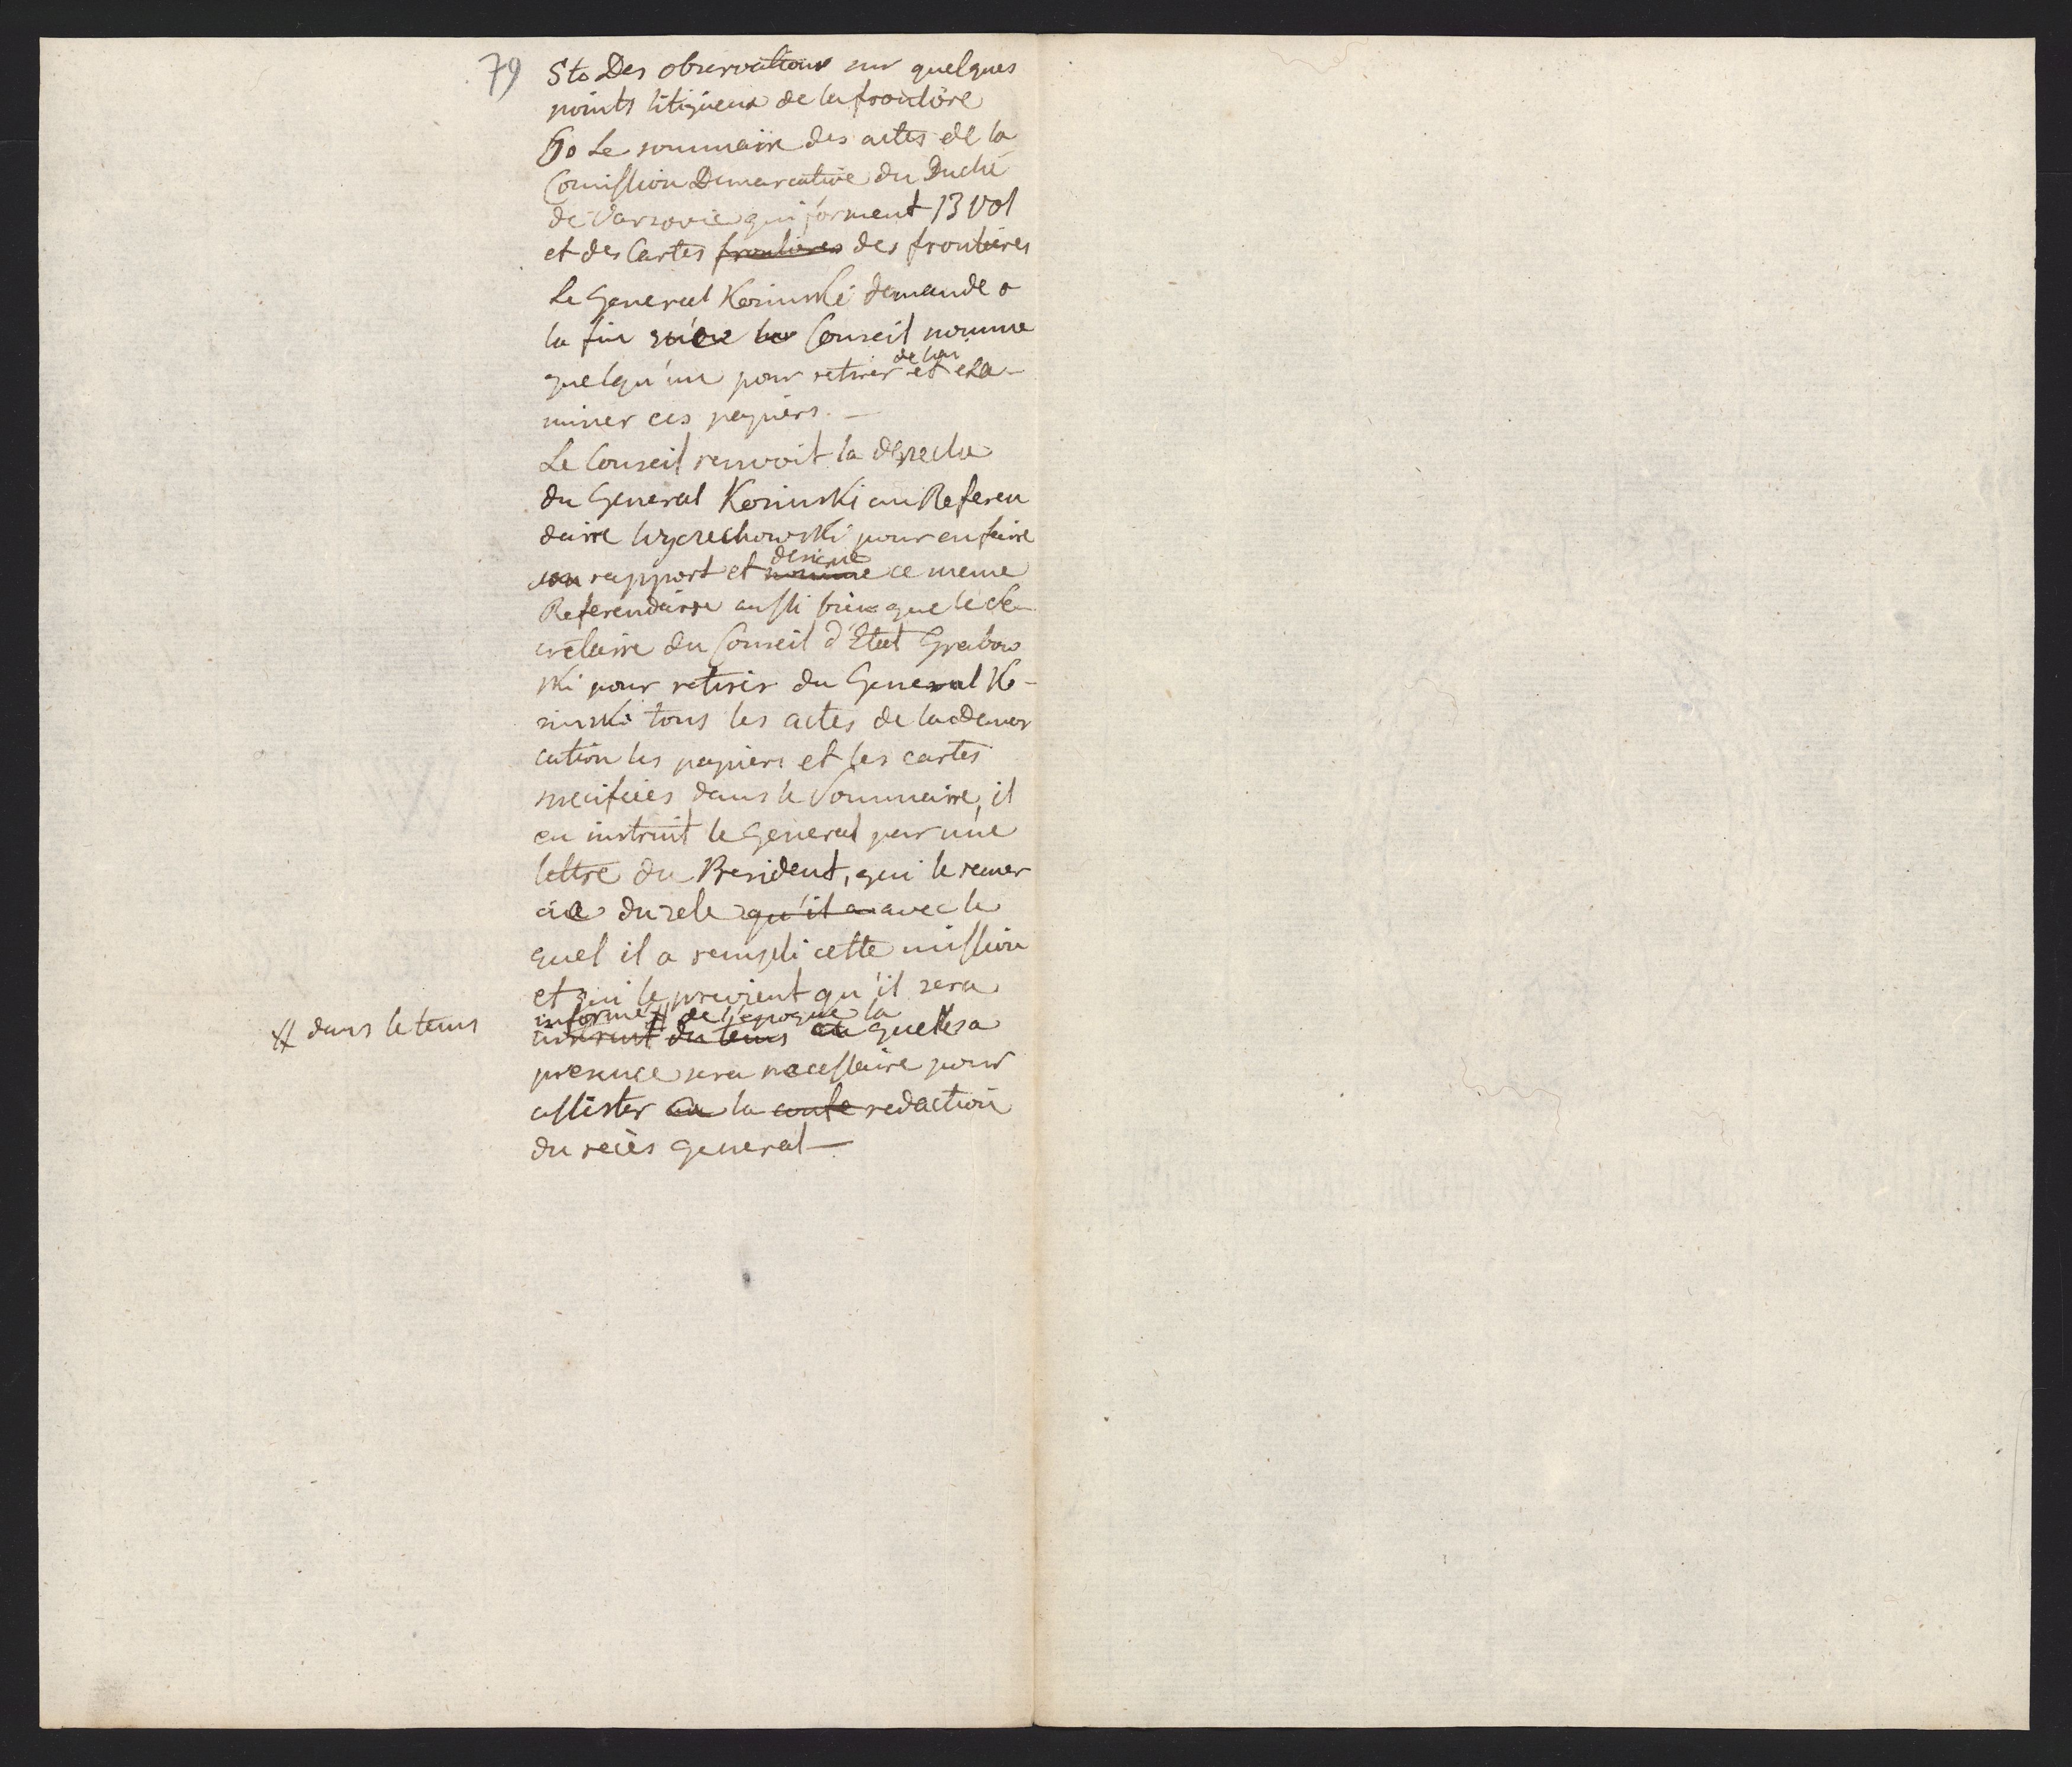 79
5to Des observations sur quelques
points litigieux de la frontière
6o Le sommaire des actes de la
Comission Demarcative du Duché
de Varsovie qui forment 13 Vol
et des Cartes frontieres des frontieres
Le General Kosinski demande a
la fin que le Conseil nomme
de lui
quelqu'un pour retirer et exa-
miner ces papiers. —
Le Conseil renvoit la depeche
du General Kosinski au Referen
daire Wyczechowski pour en faire
designe
son rapport et nomme ce meme
Referendaire aussi bien que le Se-
cretaire du Conseil d'Etat Grabow
ski pour retirer du General Ko-
sinski tous les actes de la demar
cation les papiers et les cartes
specifiées dans le Sommaire, il
en instruit le General par une
lettre du President, qui le remer
cie du zele qu'il a avec le
quel il a rempli cette mission
et qui le previent qu'il sera
informé # de l'epoque la
# dans le tems
instruit du tems quelle sa
presence sera necessaire pour
assister a la redaction
du recès general —